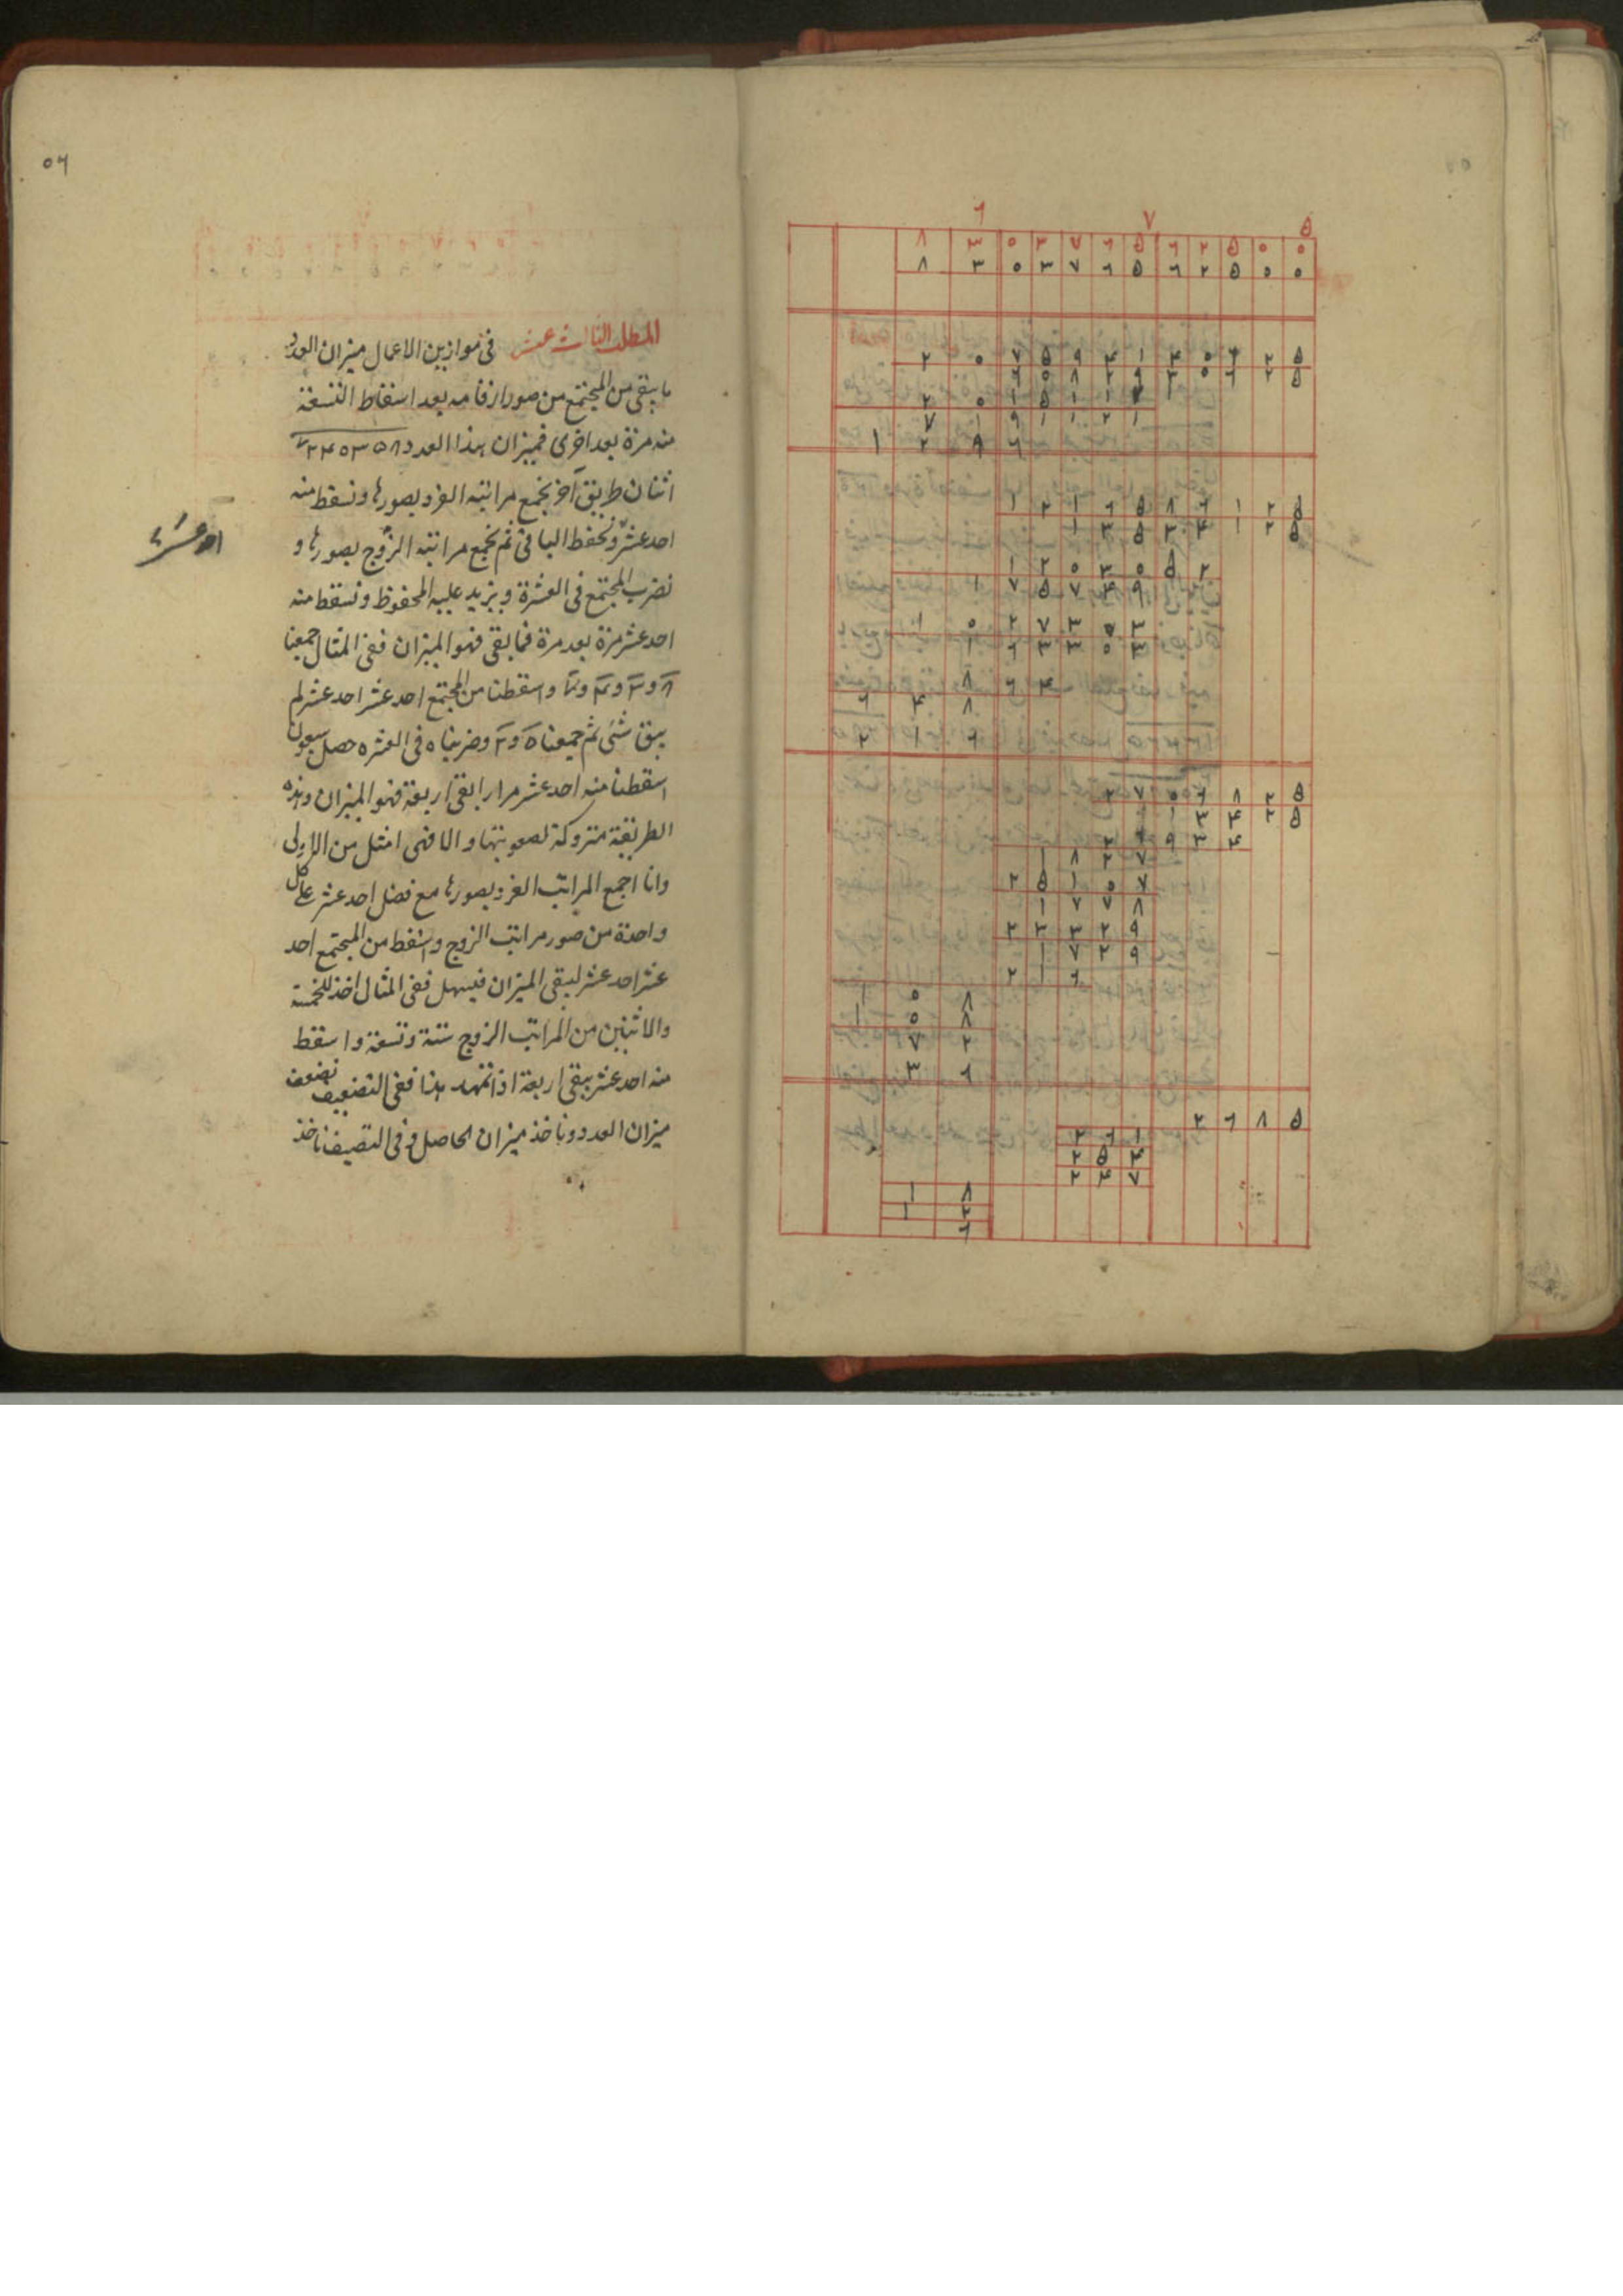 ٦ ٧ ۵
٨ ٣ ٥ ٣ ٧ ٦ ۵ ٦ ٢ ۵ ٥ ٥
٨ ٣ ٥ ٣ ٧ ٦ ۵ ٦ ٢ ۵ ٥ ٥
١ ٢ ٩ ٦
١ ٢ ١ ٦ ۵ ٨ ٦ ١ ٢ ۵
١ ٣ ۵ ٣ ۴ ١ ٢ ۵
١ ٢ ٥ ٣ ٥ ۵ ٢
١ ٧ ۵ ٧ ۴ ٩
١ ٥ ٢ ٧ ٣ ٥ ٣
١ ٦ ٣ ٣ ٥ ٣
٨ ٦ ۴
٦ ۴ ٨
٢ ١ ٦
٢ ٧ ٥ ٦ ٨ ٢ ۵
١ ٣ ۴ ٢ ۵
٢ ٦ ٩ ٣ ۴
١ ٨ ٢ ٧
٢ ۵ ١ ٥ ٧
١ ٧ ٧ ٨
٢ ٣ ٣ ٢ ٩
١ ٧ ٢ ٩
٢ ١ ٦
١ ٥ ٨
١ ٥ ٨
٧ ٢
٣ ٦
٢ ٦ ٨ ۵
٢ ٦ ١
٢ ۵ ۴
٢ ۴ ٧
١ ٨
١ ٢
٦
٥٦
المطلب الثالث عشر فى موازين الاعمال ميزان العدد
ما يبقى من المجتمع من صور ارقامه بعد اسقاط التسعة
منه مرة بعد اخرى فميزان هذا العدد
اثنان طريق آخر نجمع مراتبه الفرد بصورها ونسقط منه
احد عشر ونحفظ الباقى ثم نجمع مراتبه الزوج بصورها و
نضرب المجتمع فى العشرة ونزيد عليه المحفوظ ونسقط منه
احد عشر مرة بعد مرة فما بقى فهو الميزان ففى المثال جمعنا
واسقطنا من المجتمع احد عشر احد عشر لم
يبق شئ ثم جمعنا ٥ و ٢ وضربناه فى العشره حصل سبعون
اسقطنا منه احد عشر مرارا بقى اربعة فهو الميزان وهذه
الطريقة متروكة لصعوبتها والا فهى امثل من الاولى
وانا اجمع المراتب الفرد بصورها مع فضل احد عشر على كل
واحدة من صور مراتب الزوج واسقط من المجتمع احد
عشر احد عشر ليبقى الميزان فيسهل ففى المثال اخذ للخمسة
والاثنين من المراتب الزوج ستة وتسعة واسقط
منه احد عشر يبقى اربعة اذا تمهد هذا ففى التضعيف نضعف
ميزان العدد وناخذ ميزان الحاصل وفى التنصيف ناخذ
احد عشر